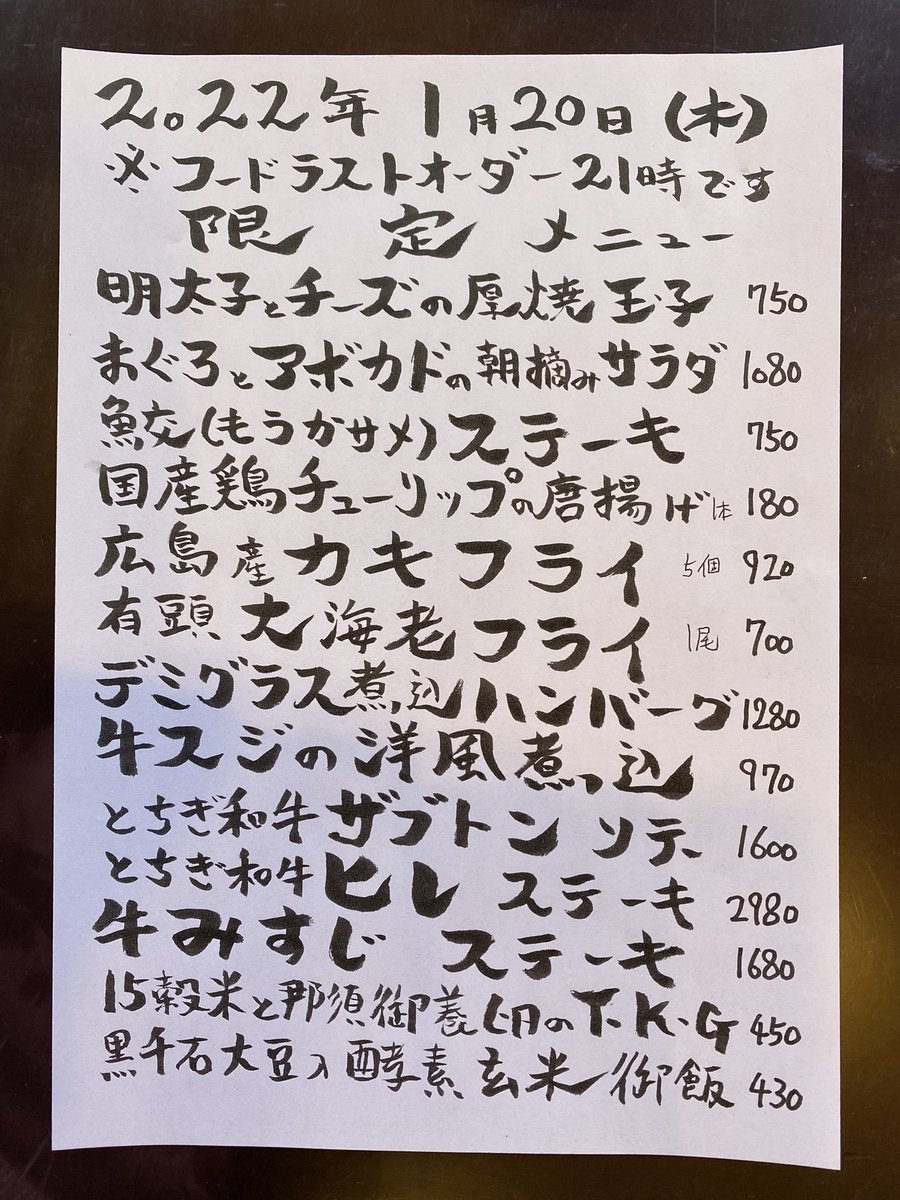 2022年 1月20日(木)
※フードラストオーダー21時です
限定メニュー
明太子とチーズの厚焼玉子 750
まぐろとアボカドの朝摘みサラダ 1080
鮫(もうかサメ)ステーキ 750
国産鶏チューリップの唐揚げ 1本 180
広島産カキフライ 5個 920
有頭大海老フライ 1尾 700
デミグラス煮込ハンバーグ 1280
牛スジの洋風煮込 970
とちぎ和牛ザブトンソテー 1600
とちぎ和牛ヒレステーキ 2980
牛みすじステーキ 1680
15穀米と那須御養卵のT.K.G 450
黒千石大豆入酵素玄米御飯 430